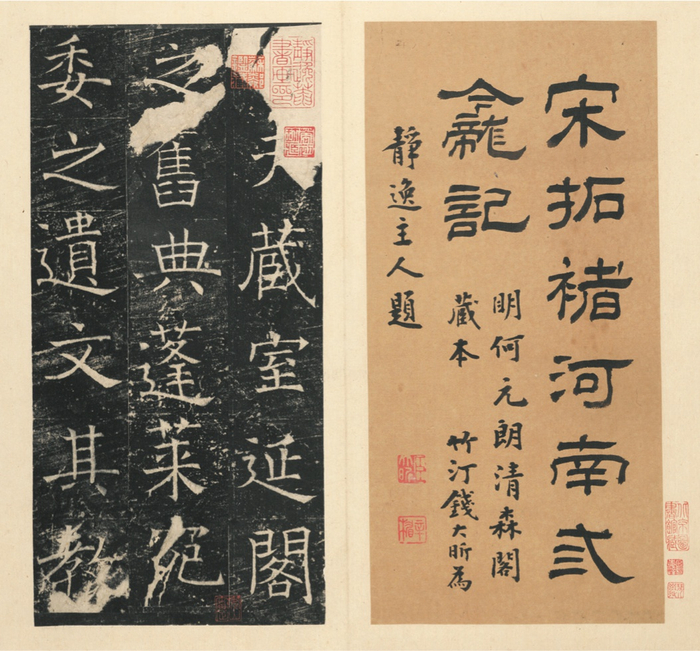 宋拓褚河南弎
龕記
明何元朗清森閣
藏本 竹汀錢大昕為
靜逸主人題
夫藏室延閣
之舊典蓬萊宛
委之遺文其教